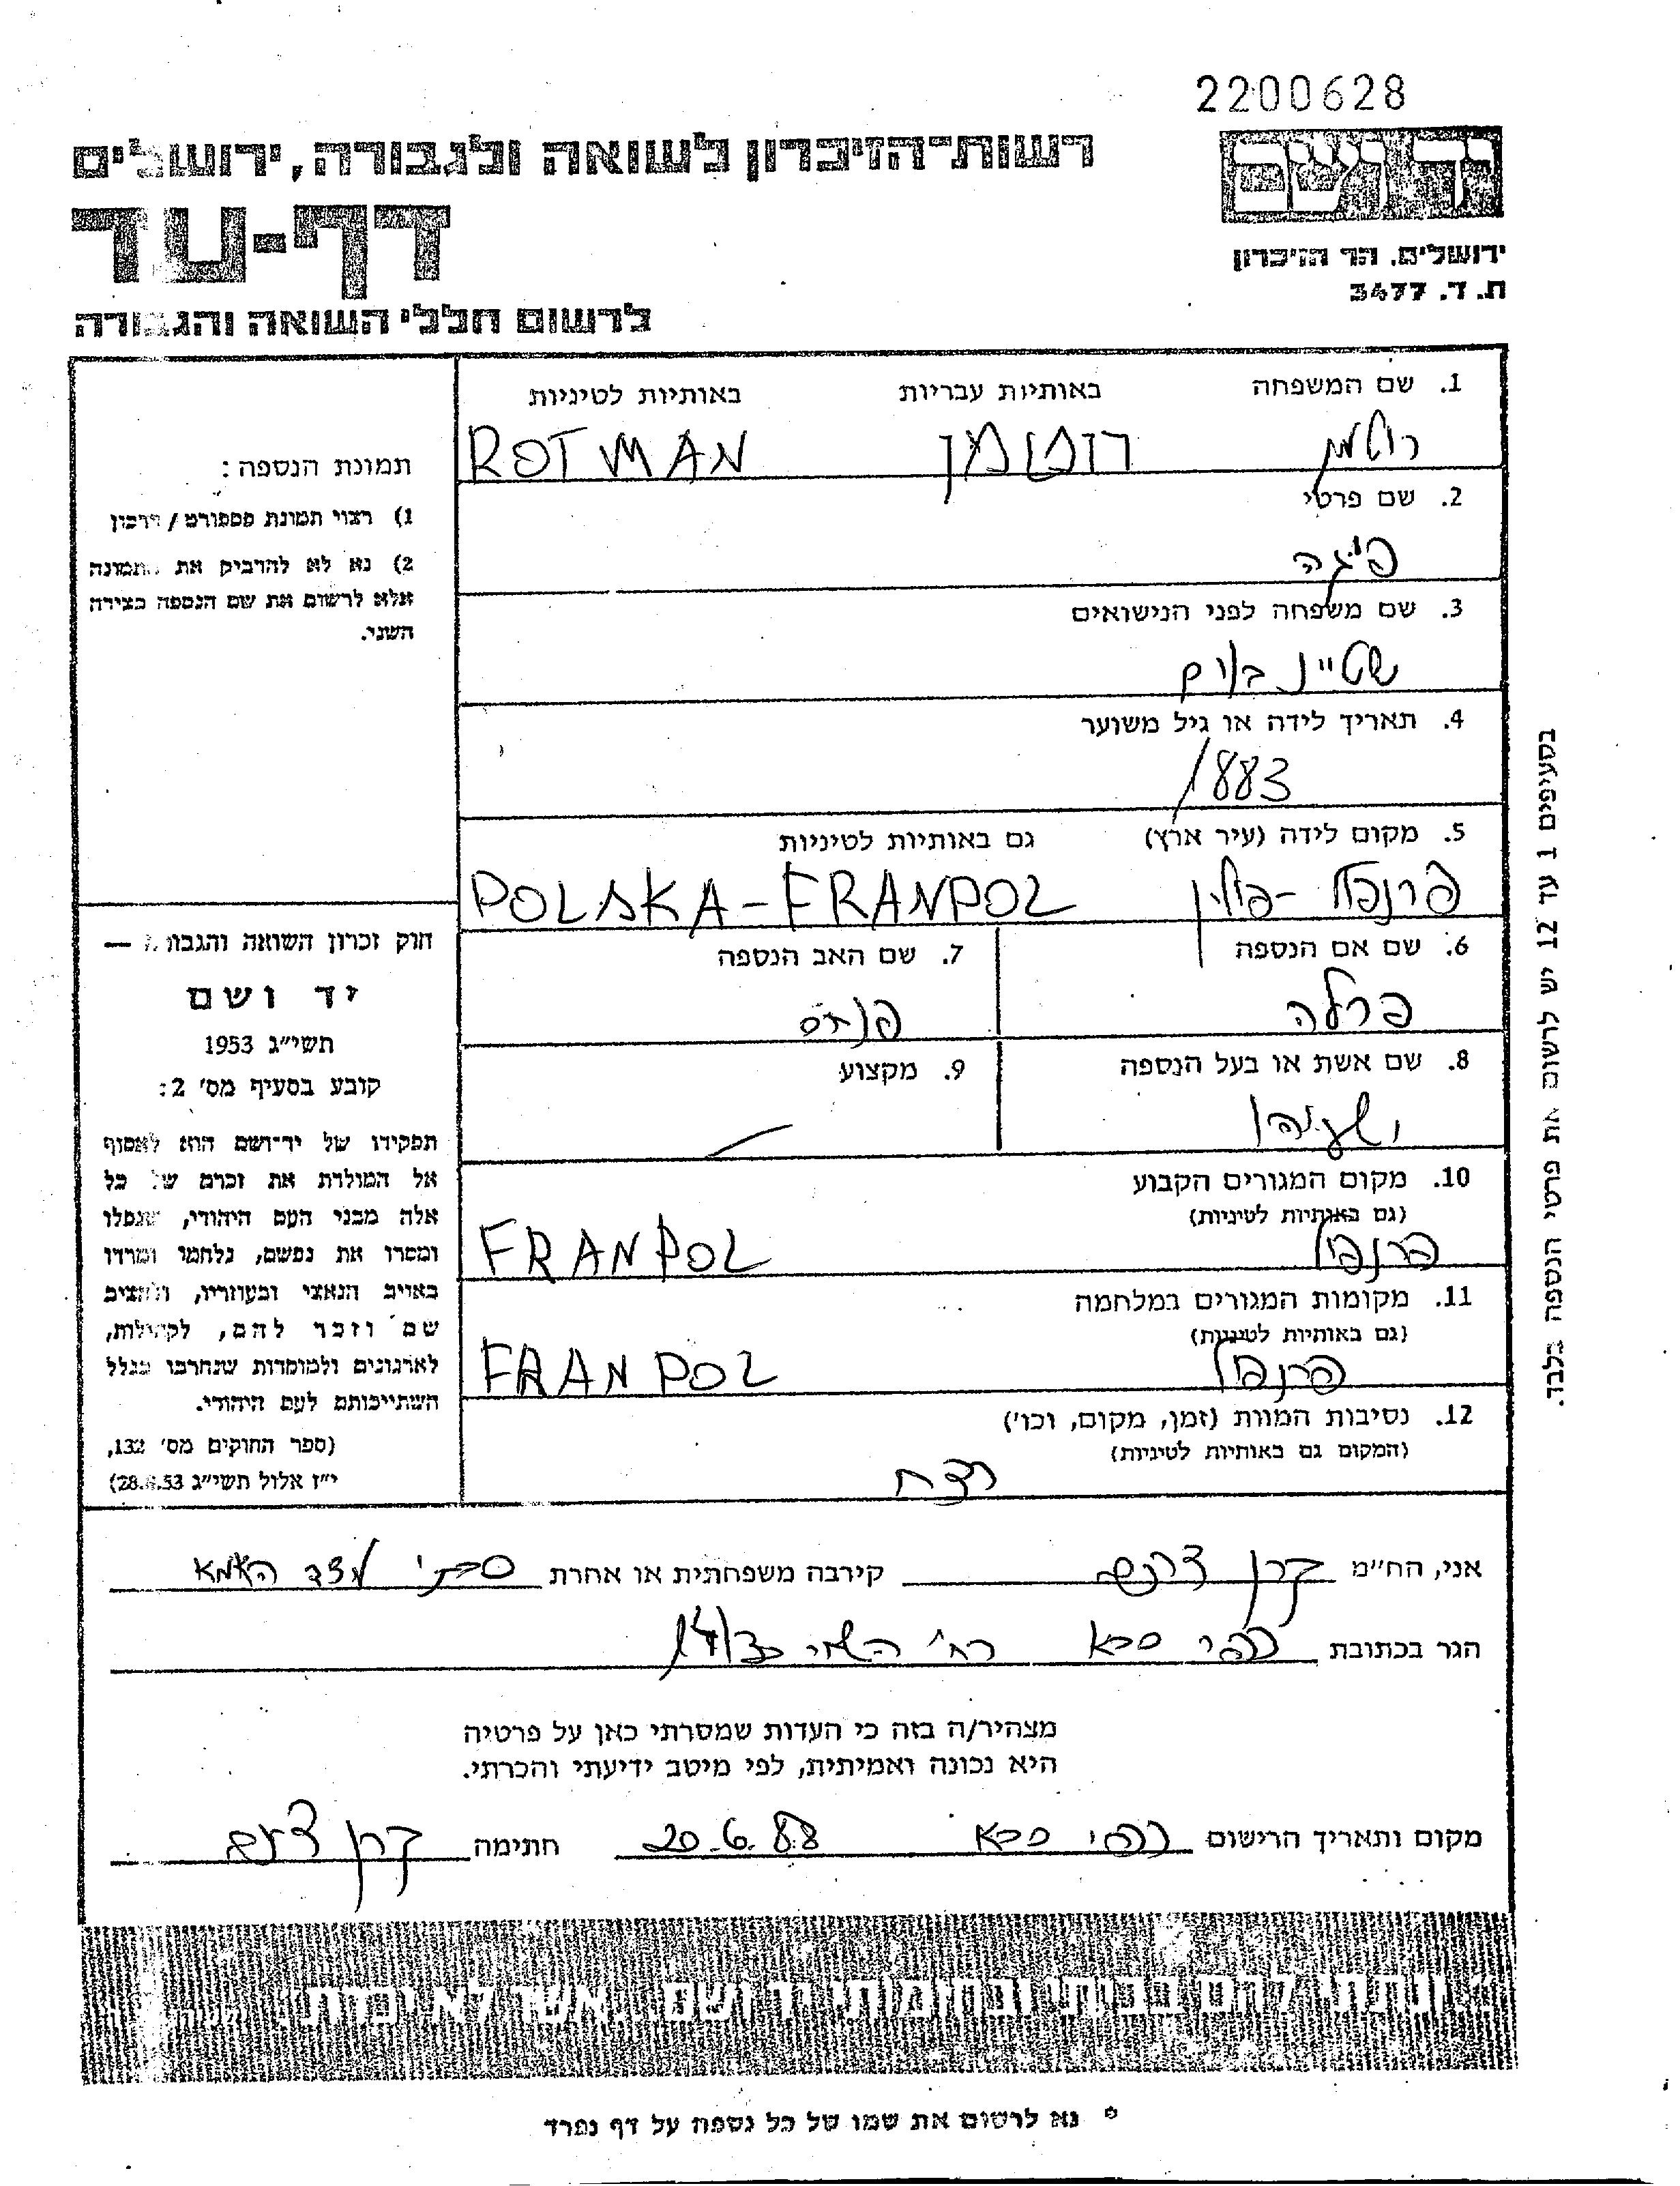 2200628
רשות־הזיכרון לשואה ולגבורה, ירושלים
יד ושם
דף-עד
ירושלים. הר הזיכרון
ת. ד. 3477
לרשום חללי השואה והגבורה
1. שם המשפחה באותיות עבריות באותיות לטיניות
רוטמן רוטמן ROTMAN
2. שם פרטי
פיגה
3. שם משפחה לפני הנישואים
שטיינבוים
4. תאריך לידה או גיל משוער
1883
5. מקום לידה (עיר ארץ) גם באותיות לטיניות
פרנפול - פולין POLSKA - FRANPOL
6. שם אם הנספה 7. שם האב הנספה
פרלה
8. שם אשת או בעל הנספה 9. מקצוע
ישעיהו
10. מקום המגורים הקבוע
(גם באותיות לטיניות)
פרנפול FRANPOL
11. מקומות המגורים במלחמה
(גם באותיות לטיניות)
פרנפול FRANPOL
12. נסיבות המוות (זמן, מקום, וכו')
(המקום גם באותיות לטיניות)
רצח
תמונת הנספה:
1) רצוי תמונת פספורט / דרכון
2) נא לא להדביק את התמונה
אלא לרשום את שם הנספה בצידה
השני.
חוק זכרון השואה והגבורה —
יד ושם
תשי״ג 1953
קובע בסעיף מס׳ 2:
תפקידו של יד־ושם הוא לאסוף
אל המולדת את זכרם של כל
אלה מבני העם היהודי, שנפלו
ומסרו את נפשם, נלחמו ומרדו
באויב הנאצי ובעוזריו, ולהציב
שם וזכר להם, לקהילות,
לארגונים ולמוסדות שנחרבו בגלל
השתייכותם לעם היהודי.
(ספר החוקים מס׳ 132,
י״ז אלול תשי״ג 28.8.53)
בסעיפים 1 עד 12 יש לרשום את פרטי הנספה בלבד.
אני, הח״מ קרן קירבה משפחתית או אחרת סבתי מצד האמא
הגר בכתובת כפר סבא רח'
מצהיר/ה בזה כי העדות שמסרתי כאן על פרטיה
היא נכונה ואמיתית, לפי מיטב ידיעתי והכרתי.
מקום ותאריך הרישום כפר סבא 20.6.88 חתימה קרן
"ונתתי להם בביתי ובחומותי יד ושם... אשר לא יכרת"
* נא לרשום את שמו של כל נספה על דף נפרד